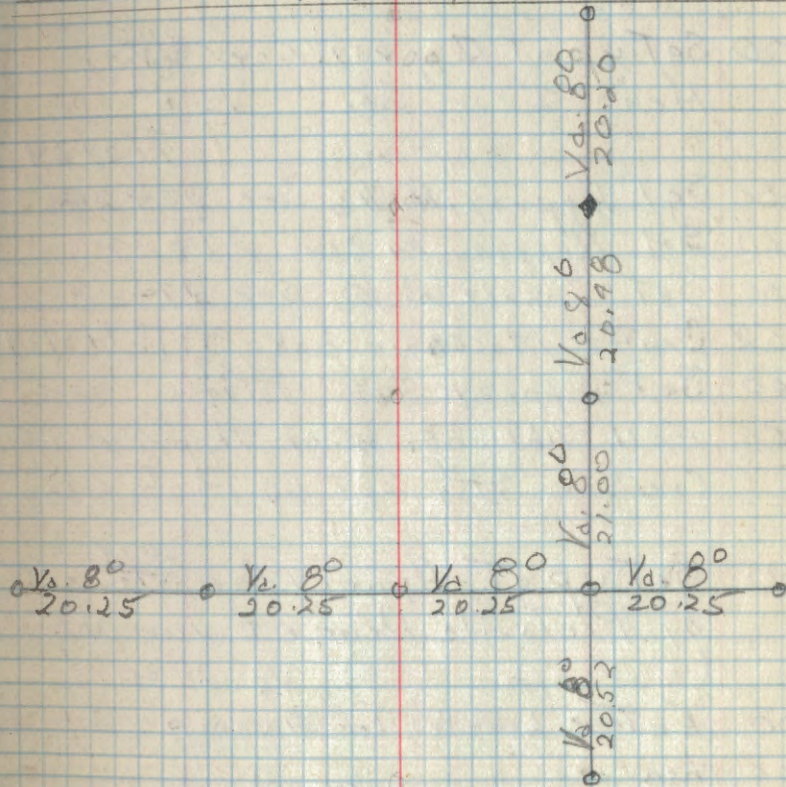 Va. 8°
20.20
Va 8°
20.98
Va. 8°
21.00
Va. 8°
20.25
Va. 8°
20.25
Va 8°
20.25
Va. 8°
20.25
Va 8°
20.52